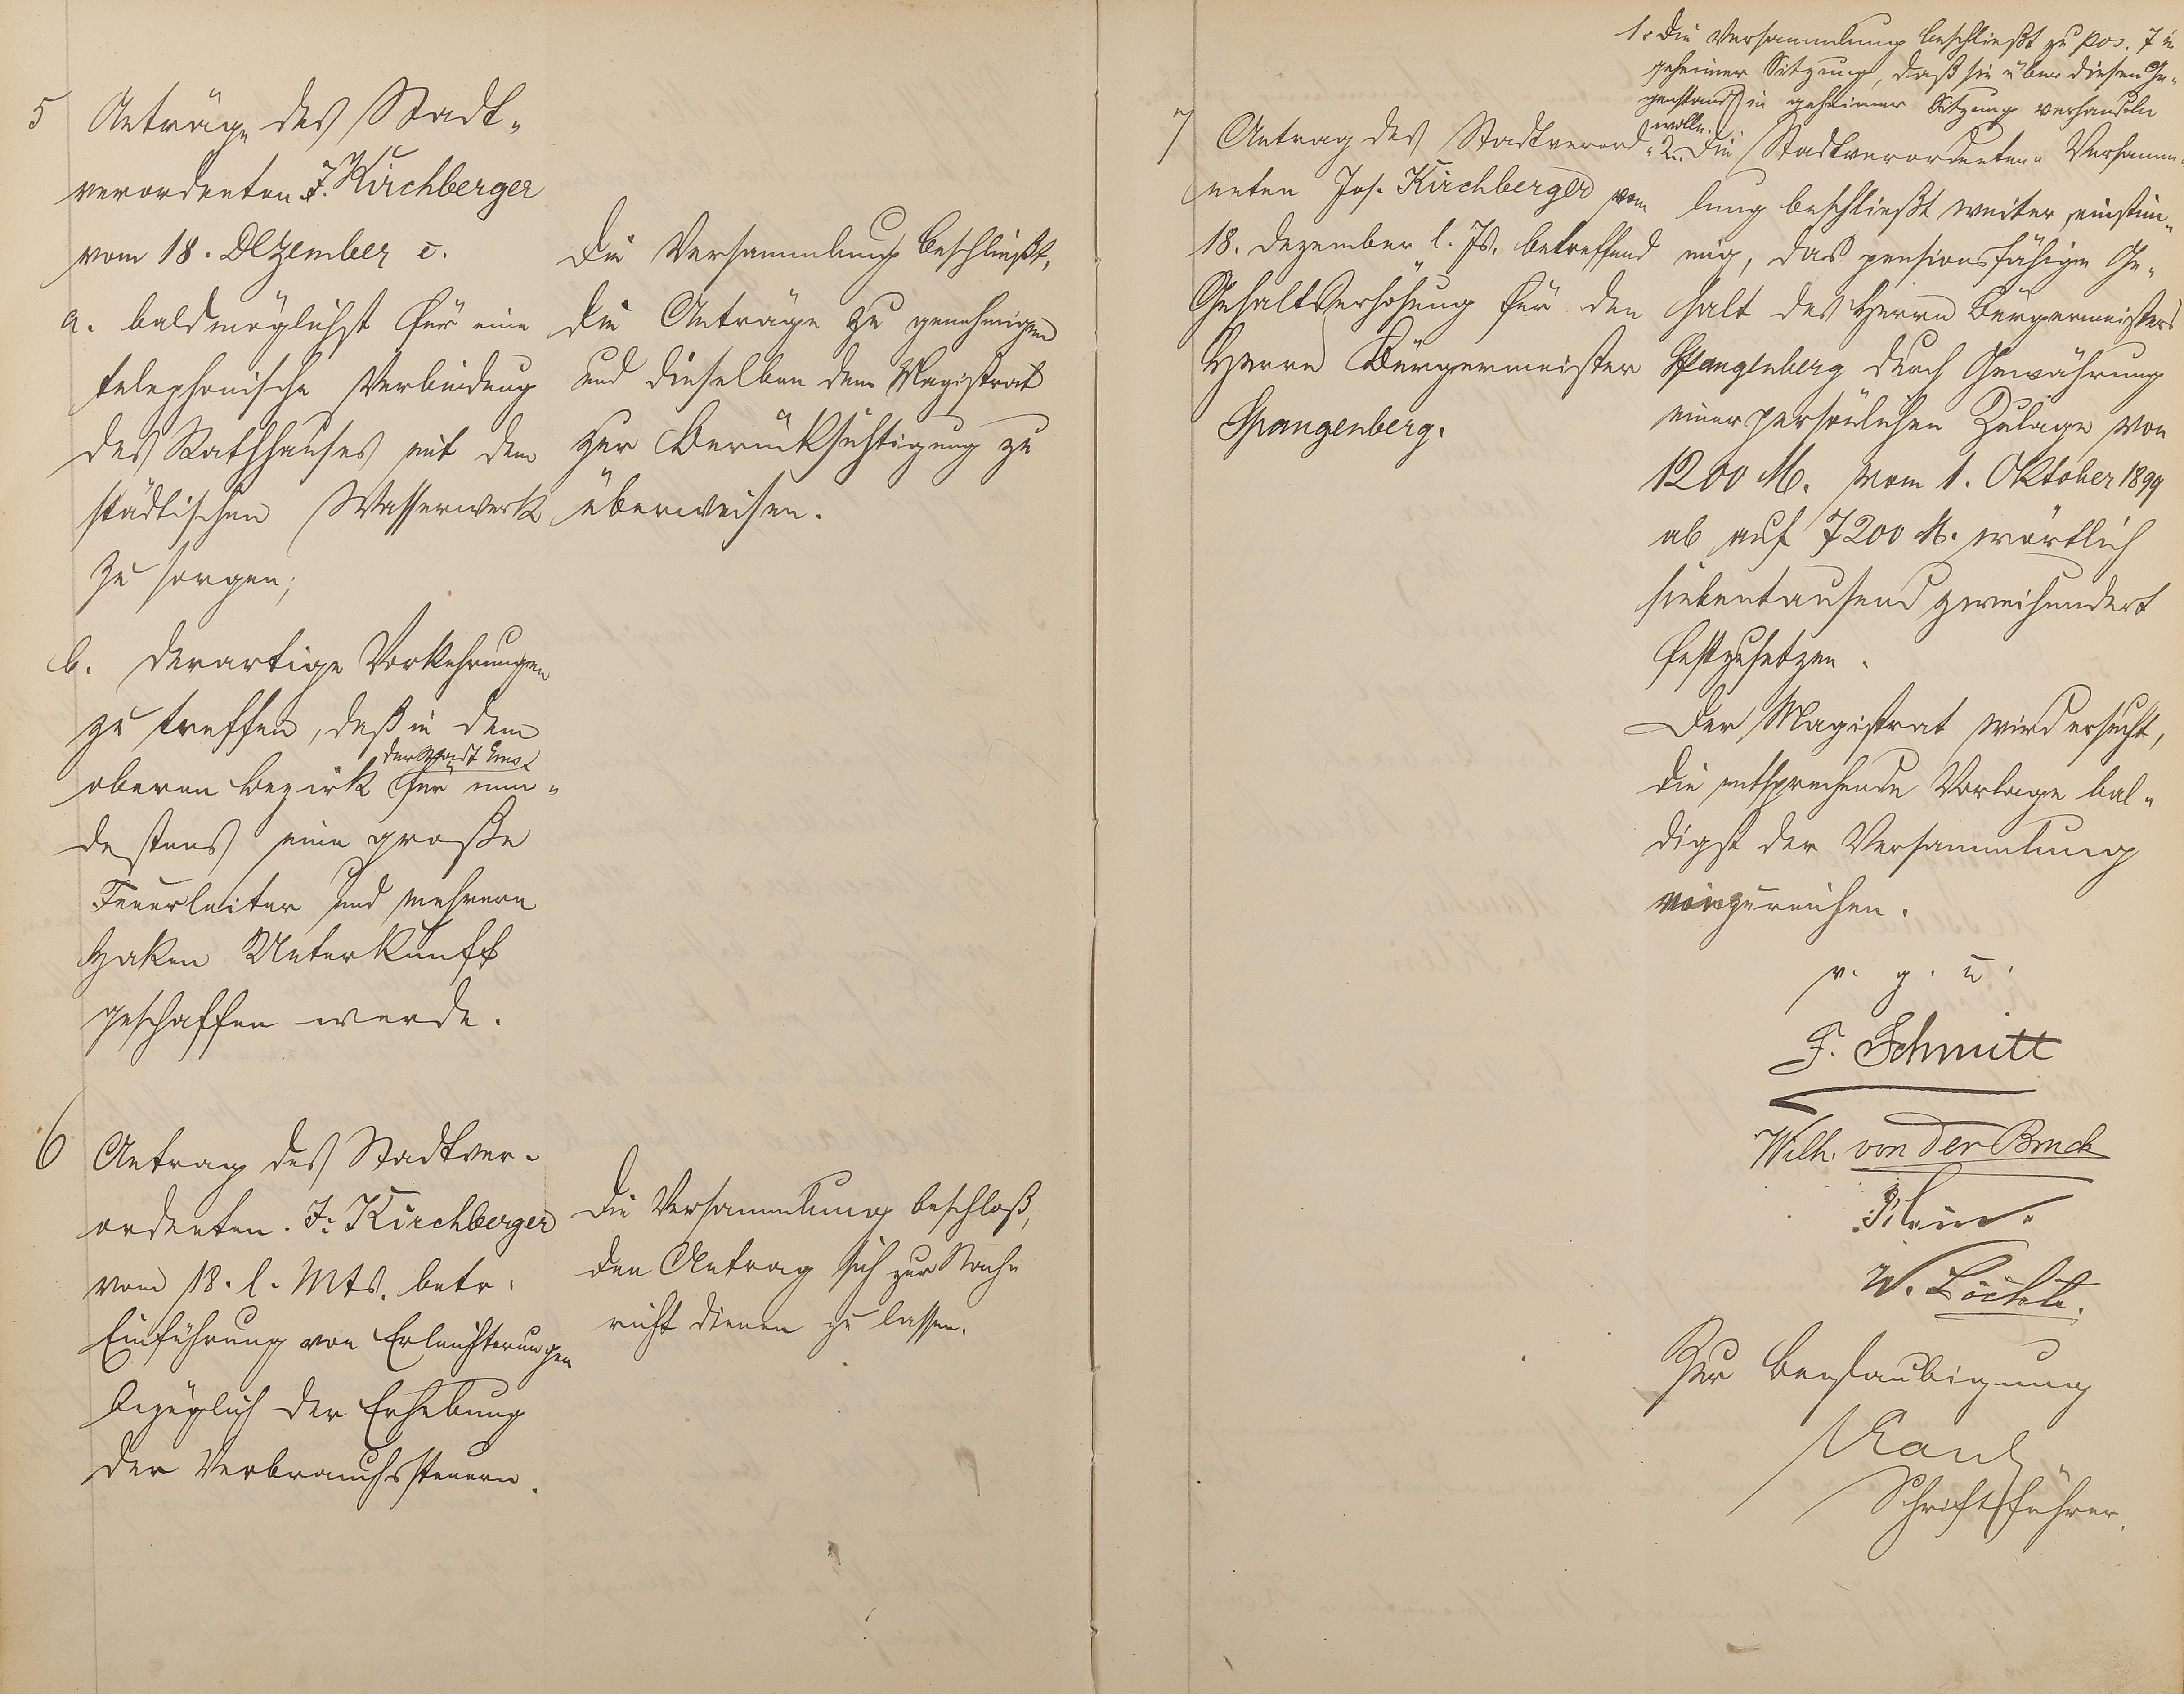 5 Anträge des Stadt-
verordneten J. Kirchberger
vom 18. Dezember c.
a. baldmöglichst für eine
telephonische Verbindung
des Rathhauses mit dem
städtischen Wasserwerk
zu sorgen;
b. derartige Vorkehrungen
zu treffen, daß in dem
der Stadt Ems
oberen Bezirk für min-
destens eine große
Feuerleiter und mehrere
Haken Unterkunft
geschaffen werde.
Die Versammlung beschließt,
die Anträge zu genehmigen
und dieselben dem Magistrat
zur Berücksichtigung zu
überweisen.
6 Antrag des Stadtver-
ordneten J. Kirchberger
vom 18. l. Mts. betr.
Einführung von Erleichterungen
bezüglich der Erhebung
der Verbrauchssteuern.
Die Versammlung beschloß,
den Antrag sich zur Nach-
richt dienen zu lassen.
7 Antrag des Stadtverord-
neten Jos. Kirchberger vom
18. Dezember l. Js. betreffend
Gehaltserhöhung für den
Herrn Bürgermeister
Spangenberg.
1. Die Versammlung beschließt zu pos. 7 in
geheimer Sitzung, daß sie über diesen Ge-
genstand in geheimer Sitzung verhandeln
wolle.
2. Die Stadtverordneten-Versamm-
lung beschließt weiter einstim-
mig, das pensionsfähige Ge-
halt des Herrn Bürgermeisters
Spangenberg durch Gewährung
einer persönlichen Zulage von
1200 M. vom 1. Oktober 1899
ab auf 7200 M. wörtlich
siebentausend zweihundert
festzusetzen.
Der Magistrat wird ersucht,
die entsprechende Vorlage bal-
digst der Versammlung
einzureichen.
v. g. u.
F. Schmitt
Wilh. von der Bruck
Klein.
W.
Zur Beglaubigung
Schriftführer.